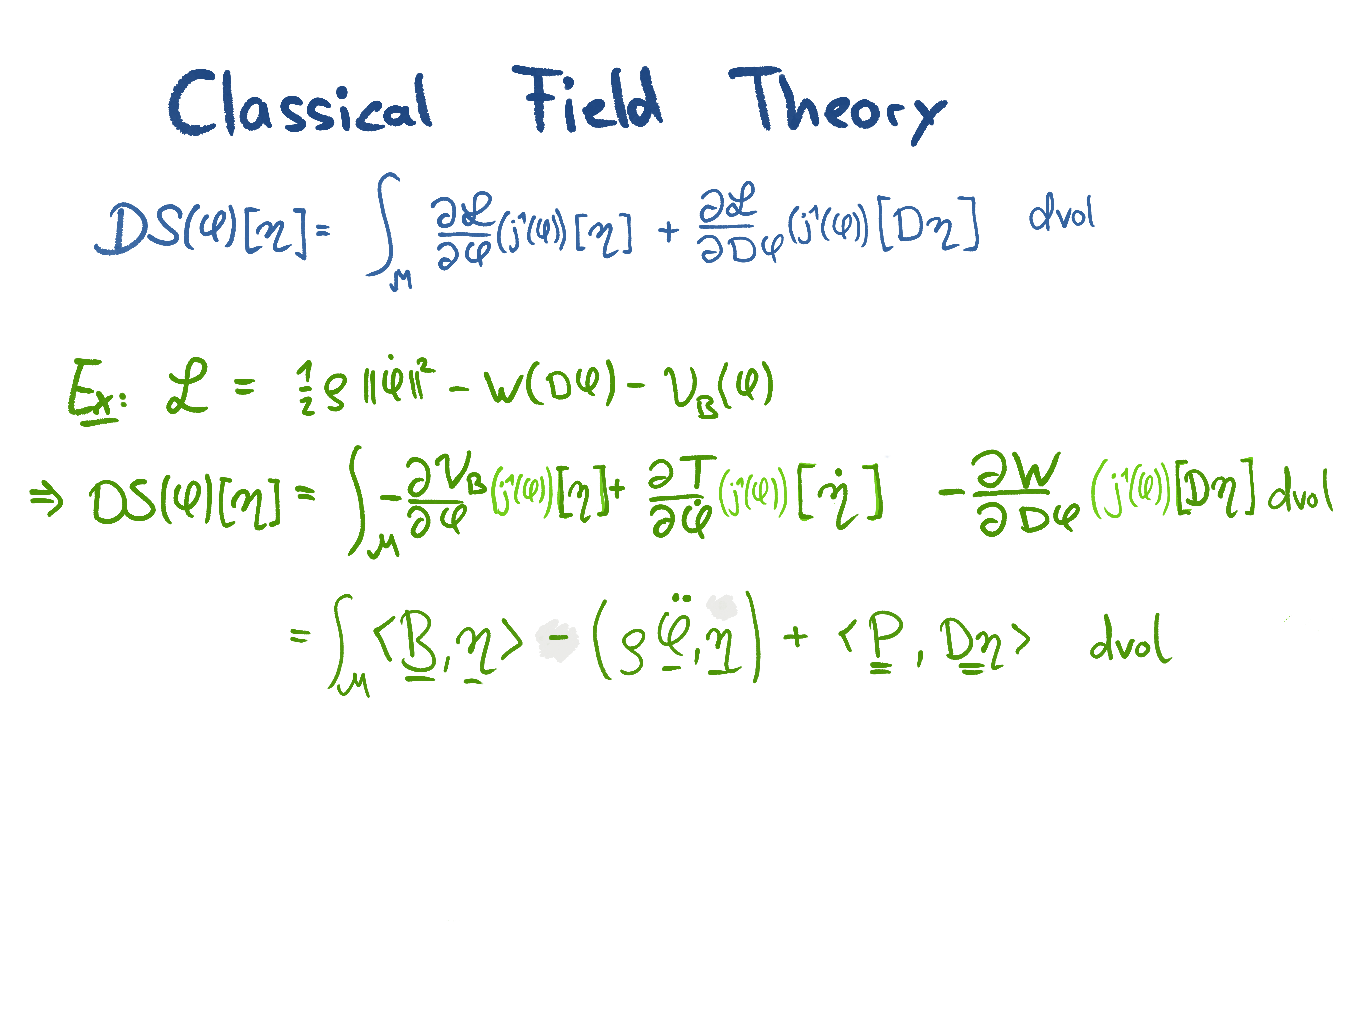 Classical Field Theory
DS(φ)[η] = ∫_M ∂ℒ/∂φ (j¹(φ)) [η] + ∂ℒ/∂Dφ (j¹(φ)) [Dη] dvol
Ex: ℒ = ½ ρ ‖φ̇‖² - W(Dφ) - V_B(φ)
⇒ DS(φ)[η] = ∫_M - ∂V_B/∂φ (j¹(φ)) [η] + ∂T/∂φ̇ (j¹(φ)) [η̇] - ∂W/∂Dφ (j¹(φ)) [Dη] dvol
= ∫_M <B, η> - (ρ φ̈, η) + <P, Dη> dvol